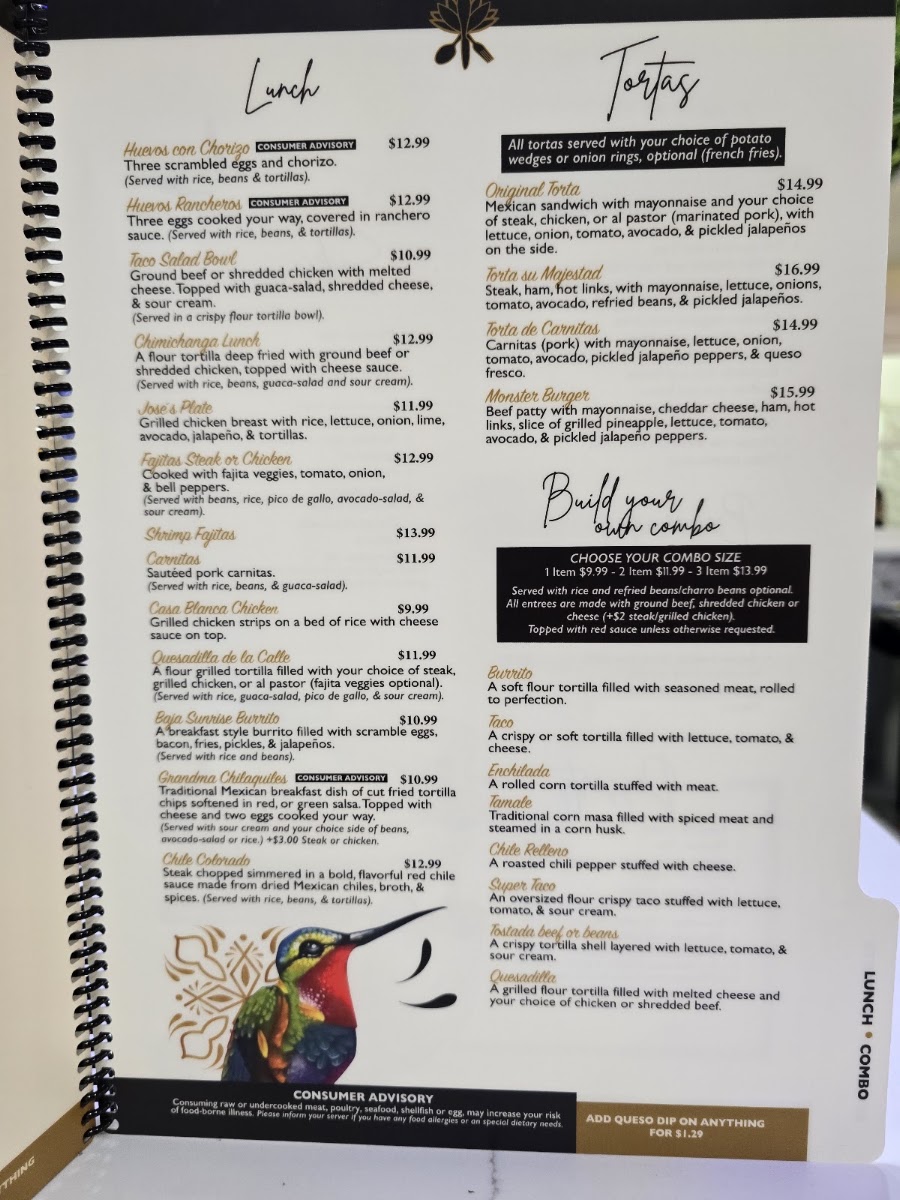 Lunch
Huevos con Chorizo CONSUMER ADVISORY $12.99
Three scrambled eggs and chorizo.
(Served with rice, beans & tortillas).
Huevos Rancheros CONSUMER ADVISORY $12.99
Three eggs cooked your way, covered in ranchero
sauce. (Served with rice, beans, & tortillas).
Taco Salad Bowl $10.99
Ground beef or shredded chicken with melted
cheese. Topped with guaca-salad, shredded cheese,
& sour cream.
(Served in a crispy flour tortilla bowl).
Chimichanga Lunch $12.99
A flour tortilla deep fried with ground beef or
shredded chicken, topped with cheese sauce.
(Served with rice, beans, guaca-salad and sour cream).
Jose's Plate $11.99
Grilled chicken breast with rice, lettuce, onion, lime,
avocado, jalapeño, & tortillas.
Fajitas Steak or Chicken $12.99
Cooked with fajita veggies, tomato, onion,
& bell peppers.
(Served with beans, rice, pico de gallo, avocado-salad, &
sour cream).
Shrimp Fajitas $13.99
Carnitas $11.99
Sautéed pork carnitas.
(Served with rice, beans, & guaca-salad).
Casa Blanca Chicken $9.99
Grilled chicken strips on a bed of rice with cheese
sauce on top.
Quesadilla de la Calle $11.99
A flour grilled tortilla filled with your choice of steak,
grilled chicken, or al pastor (fajita veggies optional).
(Served with rice, guaca-salad, pico de gallo, & sour cream).
Baja Sunrise Burrito $10.99
A breakfast style burrito filled with scramble eggs,
bacon, fries, pickles, & jalapeños.
(Served with rice and beans).
Grandma Chilaquiles CONSUMER ADVISORY $10.99
Traditional Mexican breakfast dish of cut fried tortilla
chips softened in red, or green salsa. Topped with
cheese and two eggs cooked your way.
(Served with sour cream and your choice side of beans,
avocado-salad or rice.) +$3.00 Steak or chicken.
Chile Colorado $12.99
Steak chopped simmered in a bold, flavorful red chile
sauce made from dried Mexican chiles, broth, &
spices. (Served with rice, beans, & tortillas).
Tortas
All tortas served with your choice of potato
wedges or onion rings, optional (french fries).
Original Torta $14.99
Mexican sandwich with mayonnaise and your choice
of steak, chicken, or al pastor (marinated pork), with
lettuce, onion, tomato, avocado, & pickled jalapeños
on the side.
Torta su Majestad $16.99
Steak, ham, hot links, with mayonnaise, lettuce, onions,
tomato, avocado, refried beans, & pickled jalapeños.
Torta de Carnitas $14.99
Carnitas (pork) with mayonnaise, lettuce, onion,
tomato, avocado, pickled jalapeño peppers, & queso
fresco.
Monster Burger $15.99
Beef patty with mayonnaise, cheddar cheese, ham, hot
links, slice of grilled pineapple, lettuce, tomato,
avocado, & pickled jalapeño peppers.
Build your
own combo
CHOOSE YOUR COMBO SIZE
1 Item $9.99 - 2 Item $11.99 - 3 Item $13.99
Served with rice and refried beans/charro beans optional.
All entrees are made with ground beef, shredded chicken or
cheese (+$2 steak/grilled chicken).
Topped with red sauce unless otherwise requested.
Burrito
A soft flour tortilla filled with seasoned meat, rolled
to perfection.
Taco
A crispy or soft tortilla filled with lettuce, tomato, &
cheese.
Enchilada
A rolled corn tortilla stuffed with meat.
Tamale
Traditional corn masa filled with spiced meat and
steamed in a corn husk.
Chile Relleno
A roasted chili pepper stuffed with cheese.
Super Taco
An oversized flour crispy taco stuffed with lettuce,
tomato, & sour cream.
Tostada beef or beans
A crispy tortilla shell layered with lettuce, tomato, &
sour cream.
Quesadilla
A grilled flour tortilla filled with melted cheese and
your choice of chicken or shredded beef.
LUNCH • COMBO
CONSUMER ADVISORY
Consuming raw or undercooked meat, poultry, seafood, shellfish or egg, may increase your risk
of food-borne illness. Please inform your server if you have any food allergies or an special dietary needs.
ADD QUESO DIP ON ANYTHING
FOR $1.29
THING